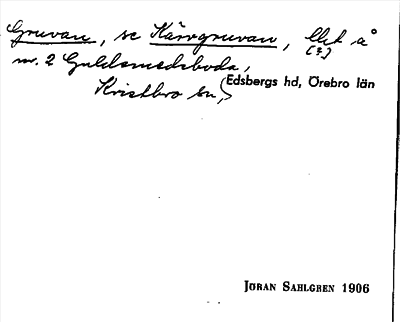 Gruvan, se Kärrgruvan, Ället å
nr. 2 Guldsmedsboda, (?)
Kristbro sn, Edsbergs hd, Örebro län
JÖRAN SAHLGREN 1906